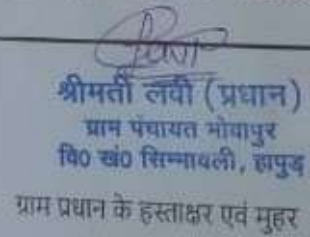 श्रीमती लवी (प्रधान)
ग्राम पंचायत भोवापुर
वि0 खं0 सिम्भावली, हापुड़
ग्राम प्रधान के हस्ताक्षर एवं मुहर